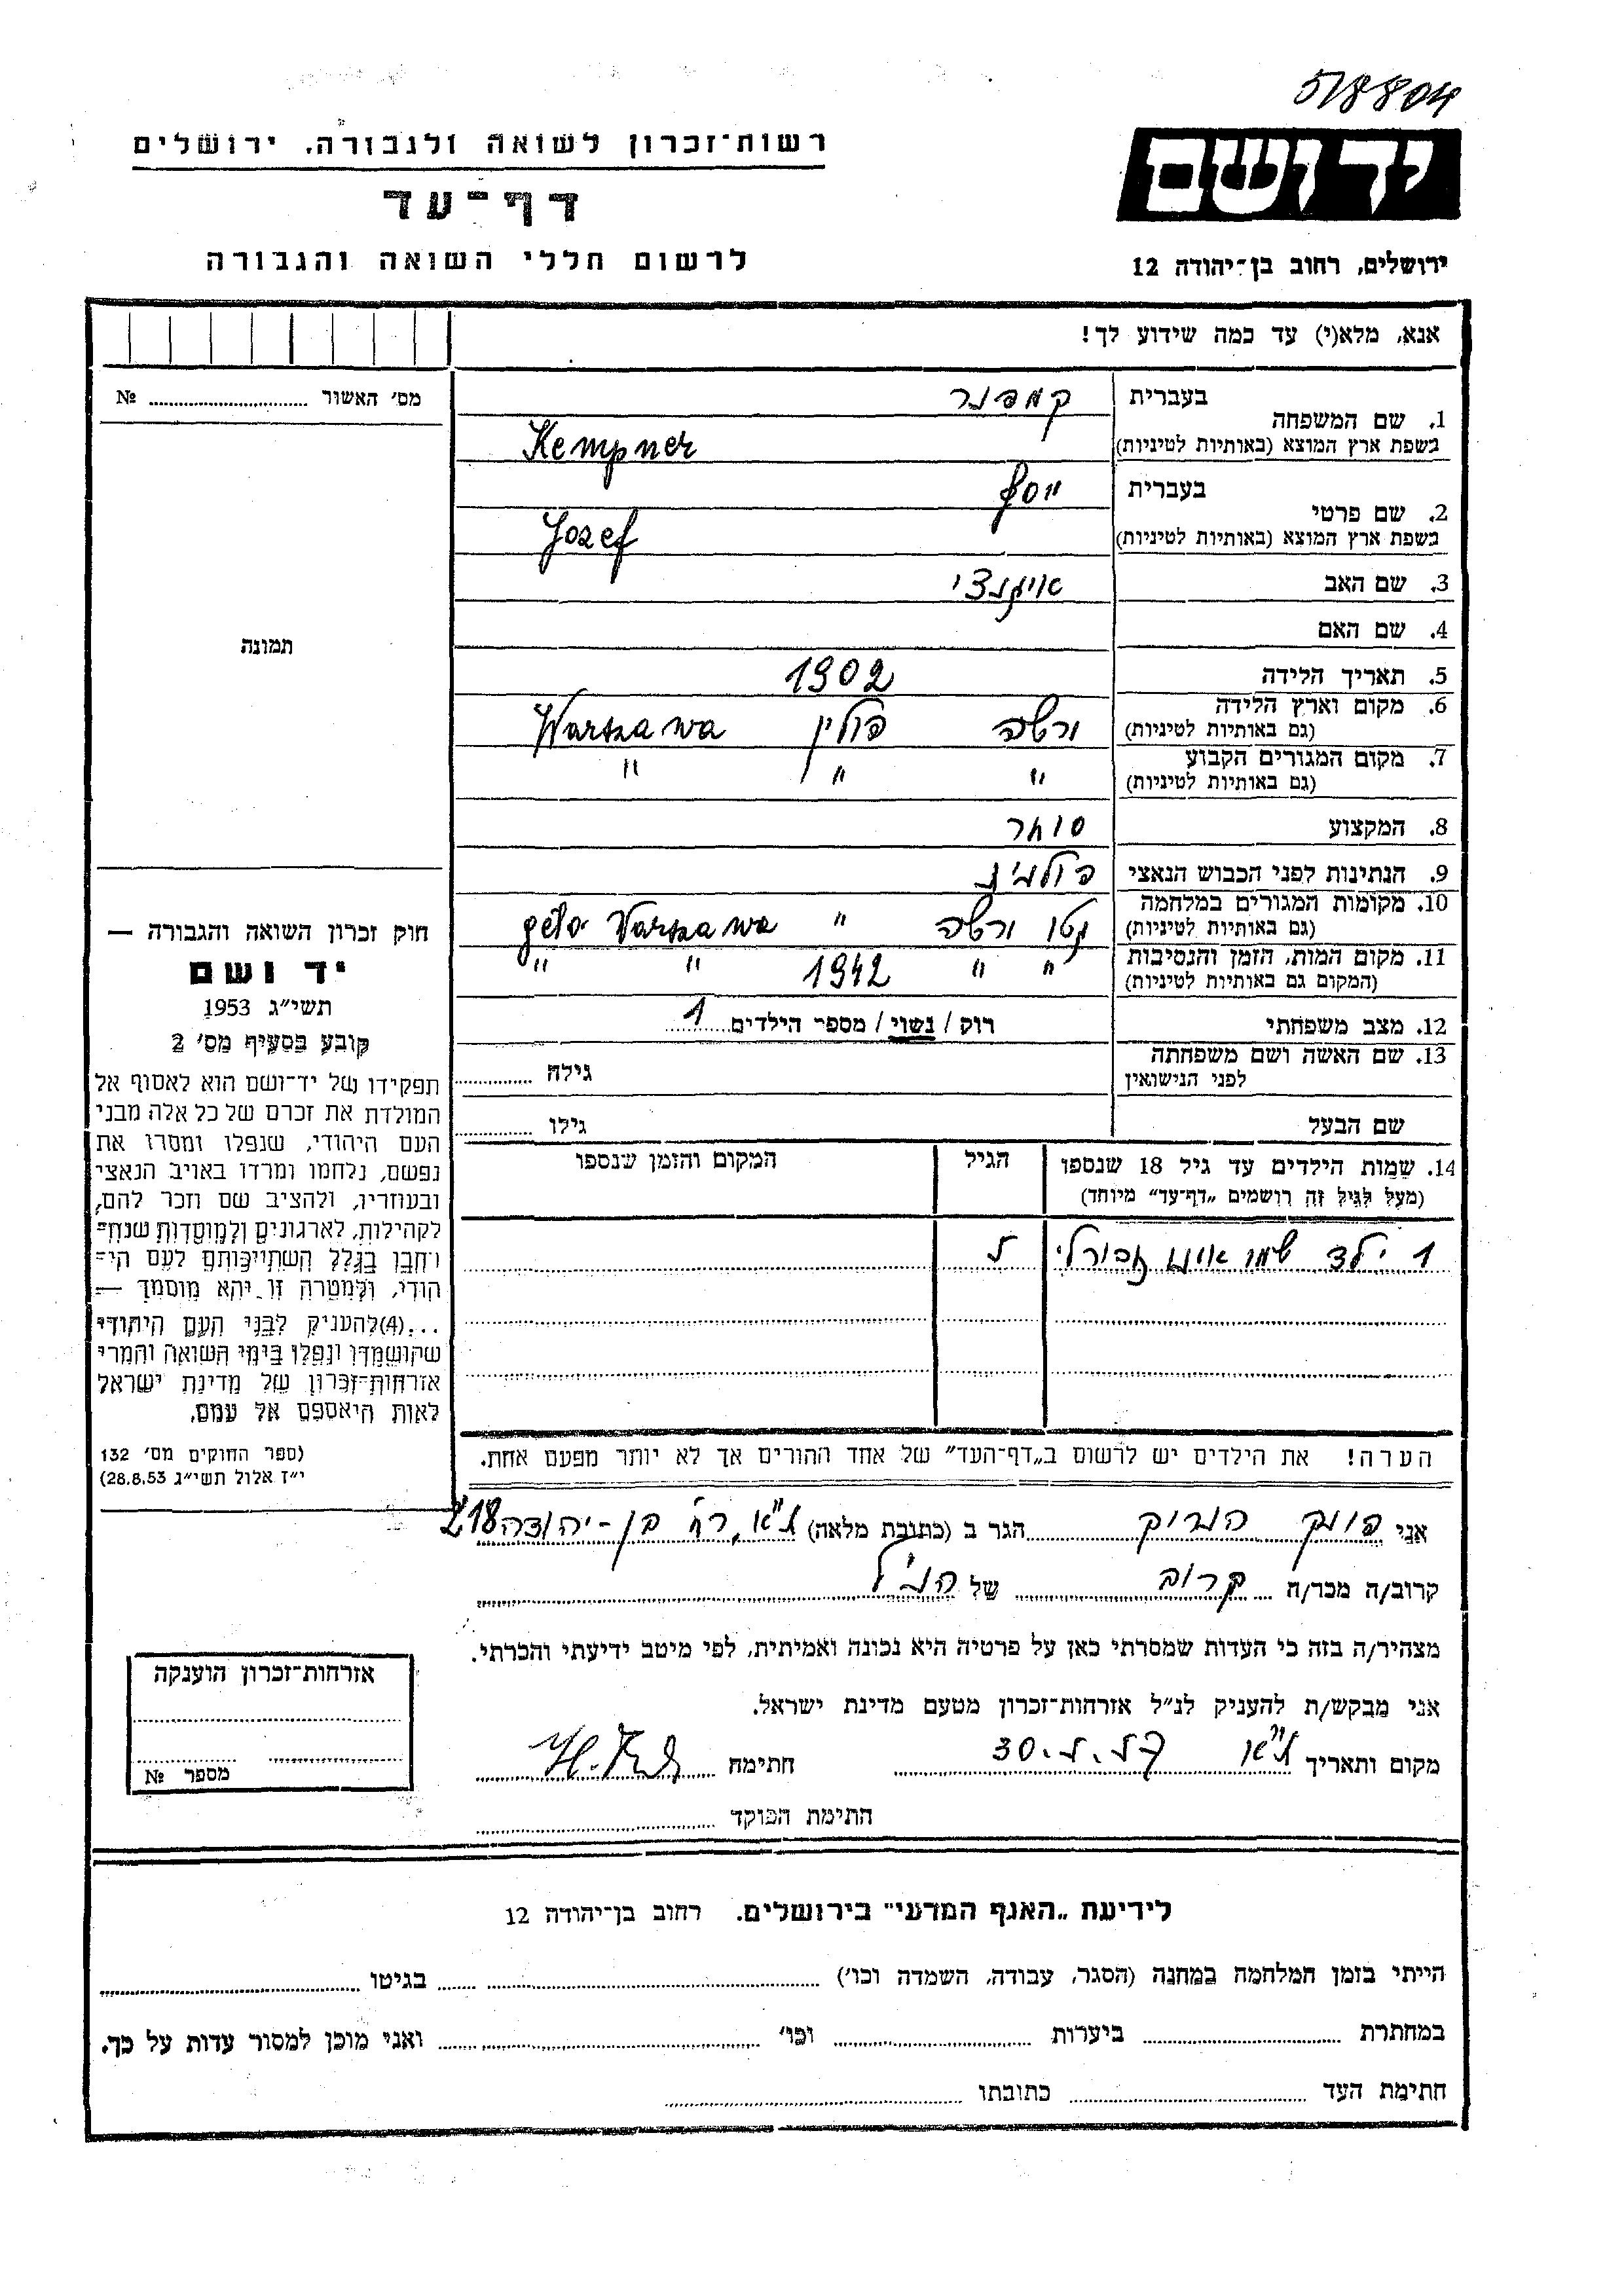 5/8804
רשות־זכרון לשואה ולגבורה, ירושלים
יד ושם
דף־עד
לרשום חללי השואה והגבורה
ירושלים, רחוב בן־יהודה 12
אנא, מלא(י) עד כמה שידוע לך!
מס׳ האשור ........ №
1. שם המשפחה
בעברית קמפנר
בשפת ארץ המוצא (באותיות לטיניות) Kempner
2. שם פרטי
בעברית יוסף
בשפת ארץ המוצא (באותיות לטיניות) Jozef
3. שם האב
4. שם האם
תמונה
5. תאריך הלידה 1902
6. מקום וארץ הלידה (גם באותיות לטיניות) ורשה פולין Warszawa
7. מקום המגורים הקבוע (גם באותיות לטיניות) " " "
8. המקצוע סוחר
9. הנתינות לפני הכבוש הנאצי פולנית
10. מקומות המגורים במלחמה (גם באותיות לטיניות) גטו ורשה " geto Warszawa
11. מקום המות, הזמן והנסיבות (המקום גם באותיות לטיניות) " " 1942 " "
12. מצב משפחתי רוק / נשוי / מספר הילדים 1
13. שם האשה ושם משפחתה לפני הנישואין גילה
שם הבעל גילו
14. שמות הילדים עד גיל 18 שנספו (מעל לגיל זה רושמים „דף־עד” מיוחד)
הגיל
המקום והזמן שנספו
1 ילד שמו אינו זכור לי
הערה! את הילדים יש לרשום ב„דף־העד” של אחד ההורים אך לא יותר מפעם אחת.
חוק זכרון השואה והגבורה —
יד ושם
תשי״ג 1953
קובע בסעיף מס׳ 2
תפקידו של יד־ושם הוא לאסוף אל
המולדת את זכרם של כל אלה מבני
העם היהודי, שנפלו ומסרו את
נפשם, נלחמו ומרדו באויב הנאצי
ובעוזריו, ולהציב שם וזכר להם,
לקהילות, לארגונים ולמוסדות שנח־
רבו בגלל השתייכותם לעם הי־
הודי, ולמטרה זו יהא מוסמך —
...(4) להעניק לבני העם היהודי
שהושמדו ונפלו בימי השואה והמרי
אזרחות־זכרון של מדינת ישראל
לאות היאספם אל עמם.
(ספר החוקים מס׳ 132
י״ז אלול תשי״ג 28.8.53)
אני פונק הנריק הגר ב (כתובת מלאה) ת״א, רח׳ בן־יהודה 218
קרוב/ה מכר/ה קרוב של הנ״ל
מצהיר/ה בזה כי העדות שמסרתי כאן על פרטיה היא נכונה ואמיתית, לפי מיטב ידיעתי והכרתי.
אני מבקש/ת להעניק לנ״ל אזרחות־זכרון מטעם מדינת ישראל.
מקום ותאריך ת״א חתימה
חתימת הפוקד
אזרחות־זכרון הוענקה
מספר №
לידיעת „האגף המדעי” בירושלים. רחוב בן־יהודה 12
הייתי בזמן המלחמה במחנה (הסגר, עבודה, השמדה וכו׳) ........ בגיטו ........
במחתרת ........ ביערות ........ וכו׳ ........ ואני מוכן למסור עדות על כך.
חתימת העד ........ כתובתו ........